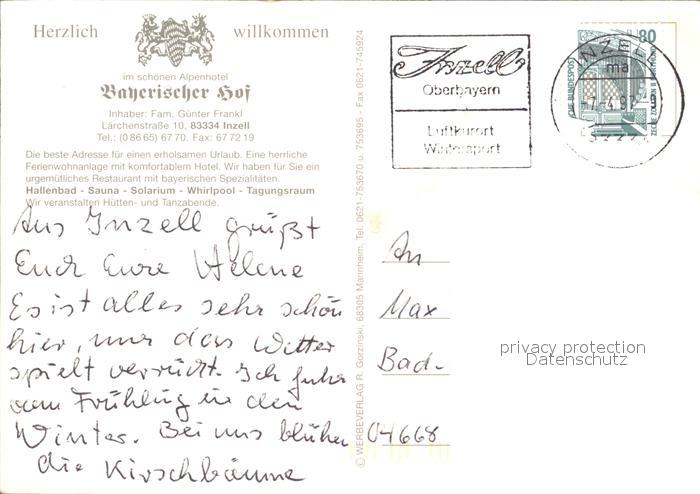 Herzlich willkommen
im schönen Alpenhotel
Bayerischer Hof
Inhaber: Fam. Günter Frankl
Lärchenstraße 10, 83334 Inzell
Tel.: (0 86 65) 67 70, Fax: 67 72 19
Die beste Adresse für einen erholsamen Urlaub. Eine herrliche
Ferienwohnanlage mit komfortablem Hotel. Wir haben für Sie ein
urgemütliches Restaurant mit bayerischen Spezialitäten.
Hallenbad - Sauna - Solarium - Whirlpool - Tagungsraum
Wir veranstalten Hütten- und Tanzabende.
Aus Inzell grüßt
Euch Eure Helene
Es ist alles sehr schön
hier, nur das Wetter
spielt verrückt. Ich fuhr
vom Frühling in den
Winter. Bei uns blühen
die Kirschbäume
© WERBEVERLAG R. Gorzinski, 68305 Mannheim, Tel. 0621-753670 u. 753695 - Fax 0621-745924
Inzell
Oberbayern
Luftkurort
Wintersport
INZELL
ma
-7.-4.97
80
DEUTSCHE BUNDESPOST
ZECHE ZOLLERN II DORTMUND
An
Max
Bad-
04668
privacy protection
Datenschutz